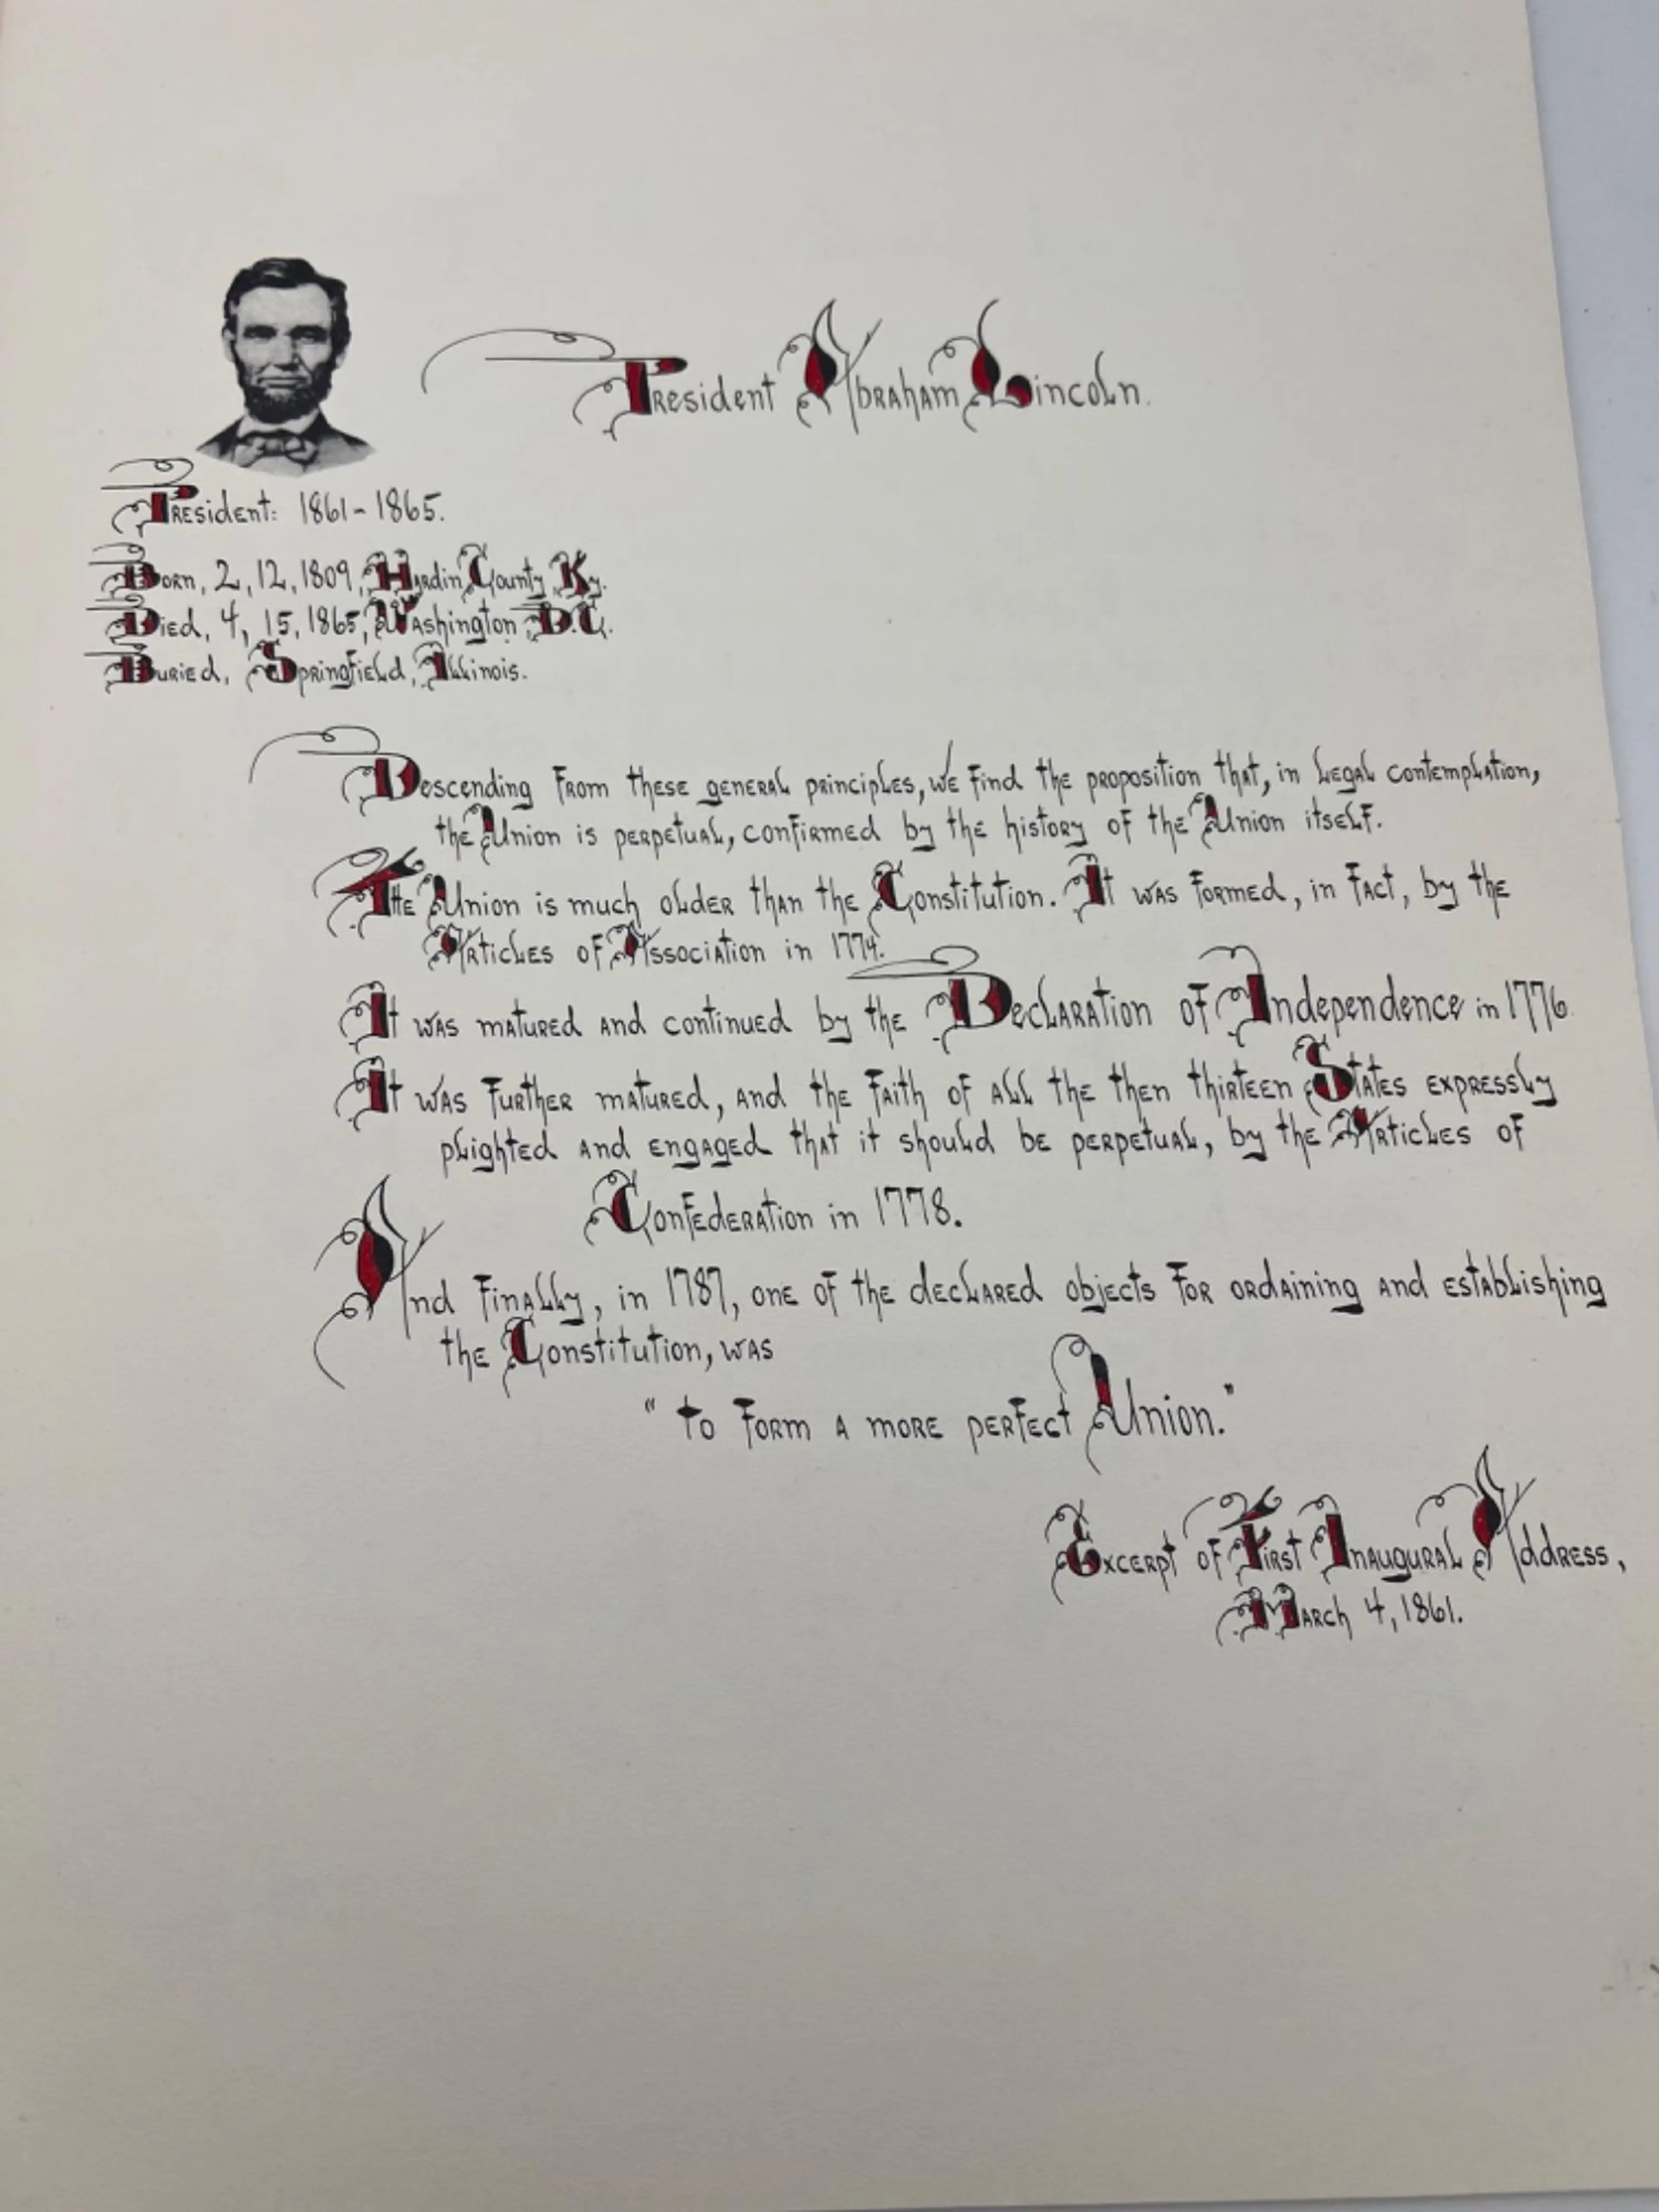 President Abraham Lincoln.
President: 1861-1865.
Born, 2, 12, 1809, Hardin County, Ky.
Died, 4, 15, 1865, Washington D.C.
Buried, Springfield, Illinois.
Descending from these general principles, we find the proposition that, in legal contemplation,
the Union is perpetual, confirmed by the history of the Union itself.
The Union is much older than the Constitution. It was formed, in fact, by the
Articles of Association in 1774.
It was matured and continued by the Declaration of Independence in 1776
It was further matured, and the faith of all the then thirteen States expressly
plighted and engaged that it should be perpetual, by the Articles of
Confederation in 1778.
And finally, in 1787, one of the declared objects for ordaining and establishing
the Constitution, was
"to form a more perfect Union."
Excerpt of First Inaugural Address,
March 4, 1861.